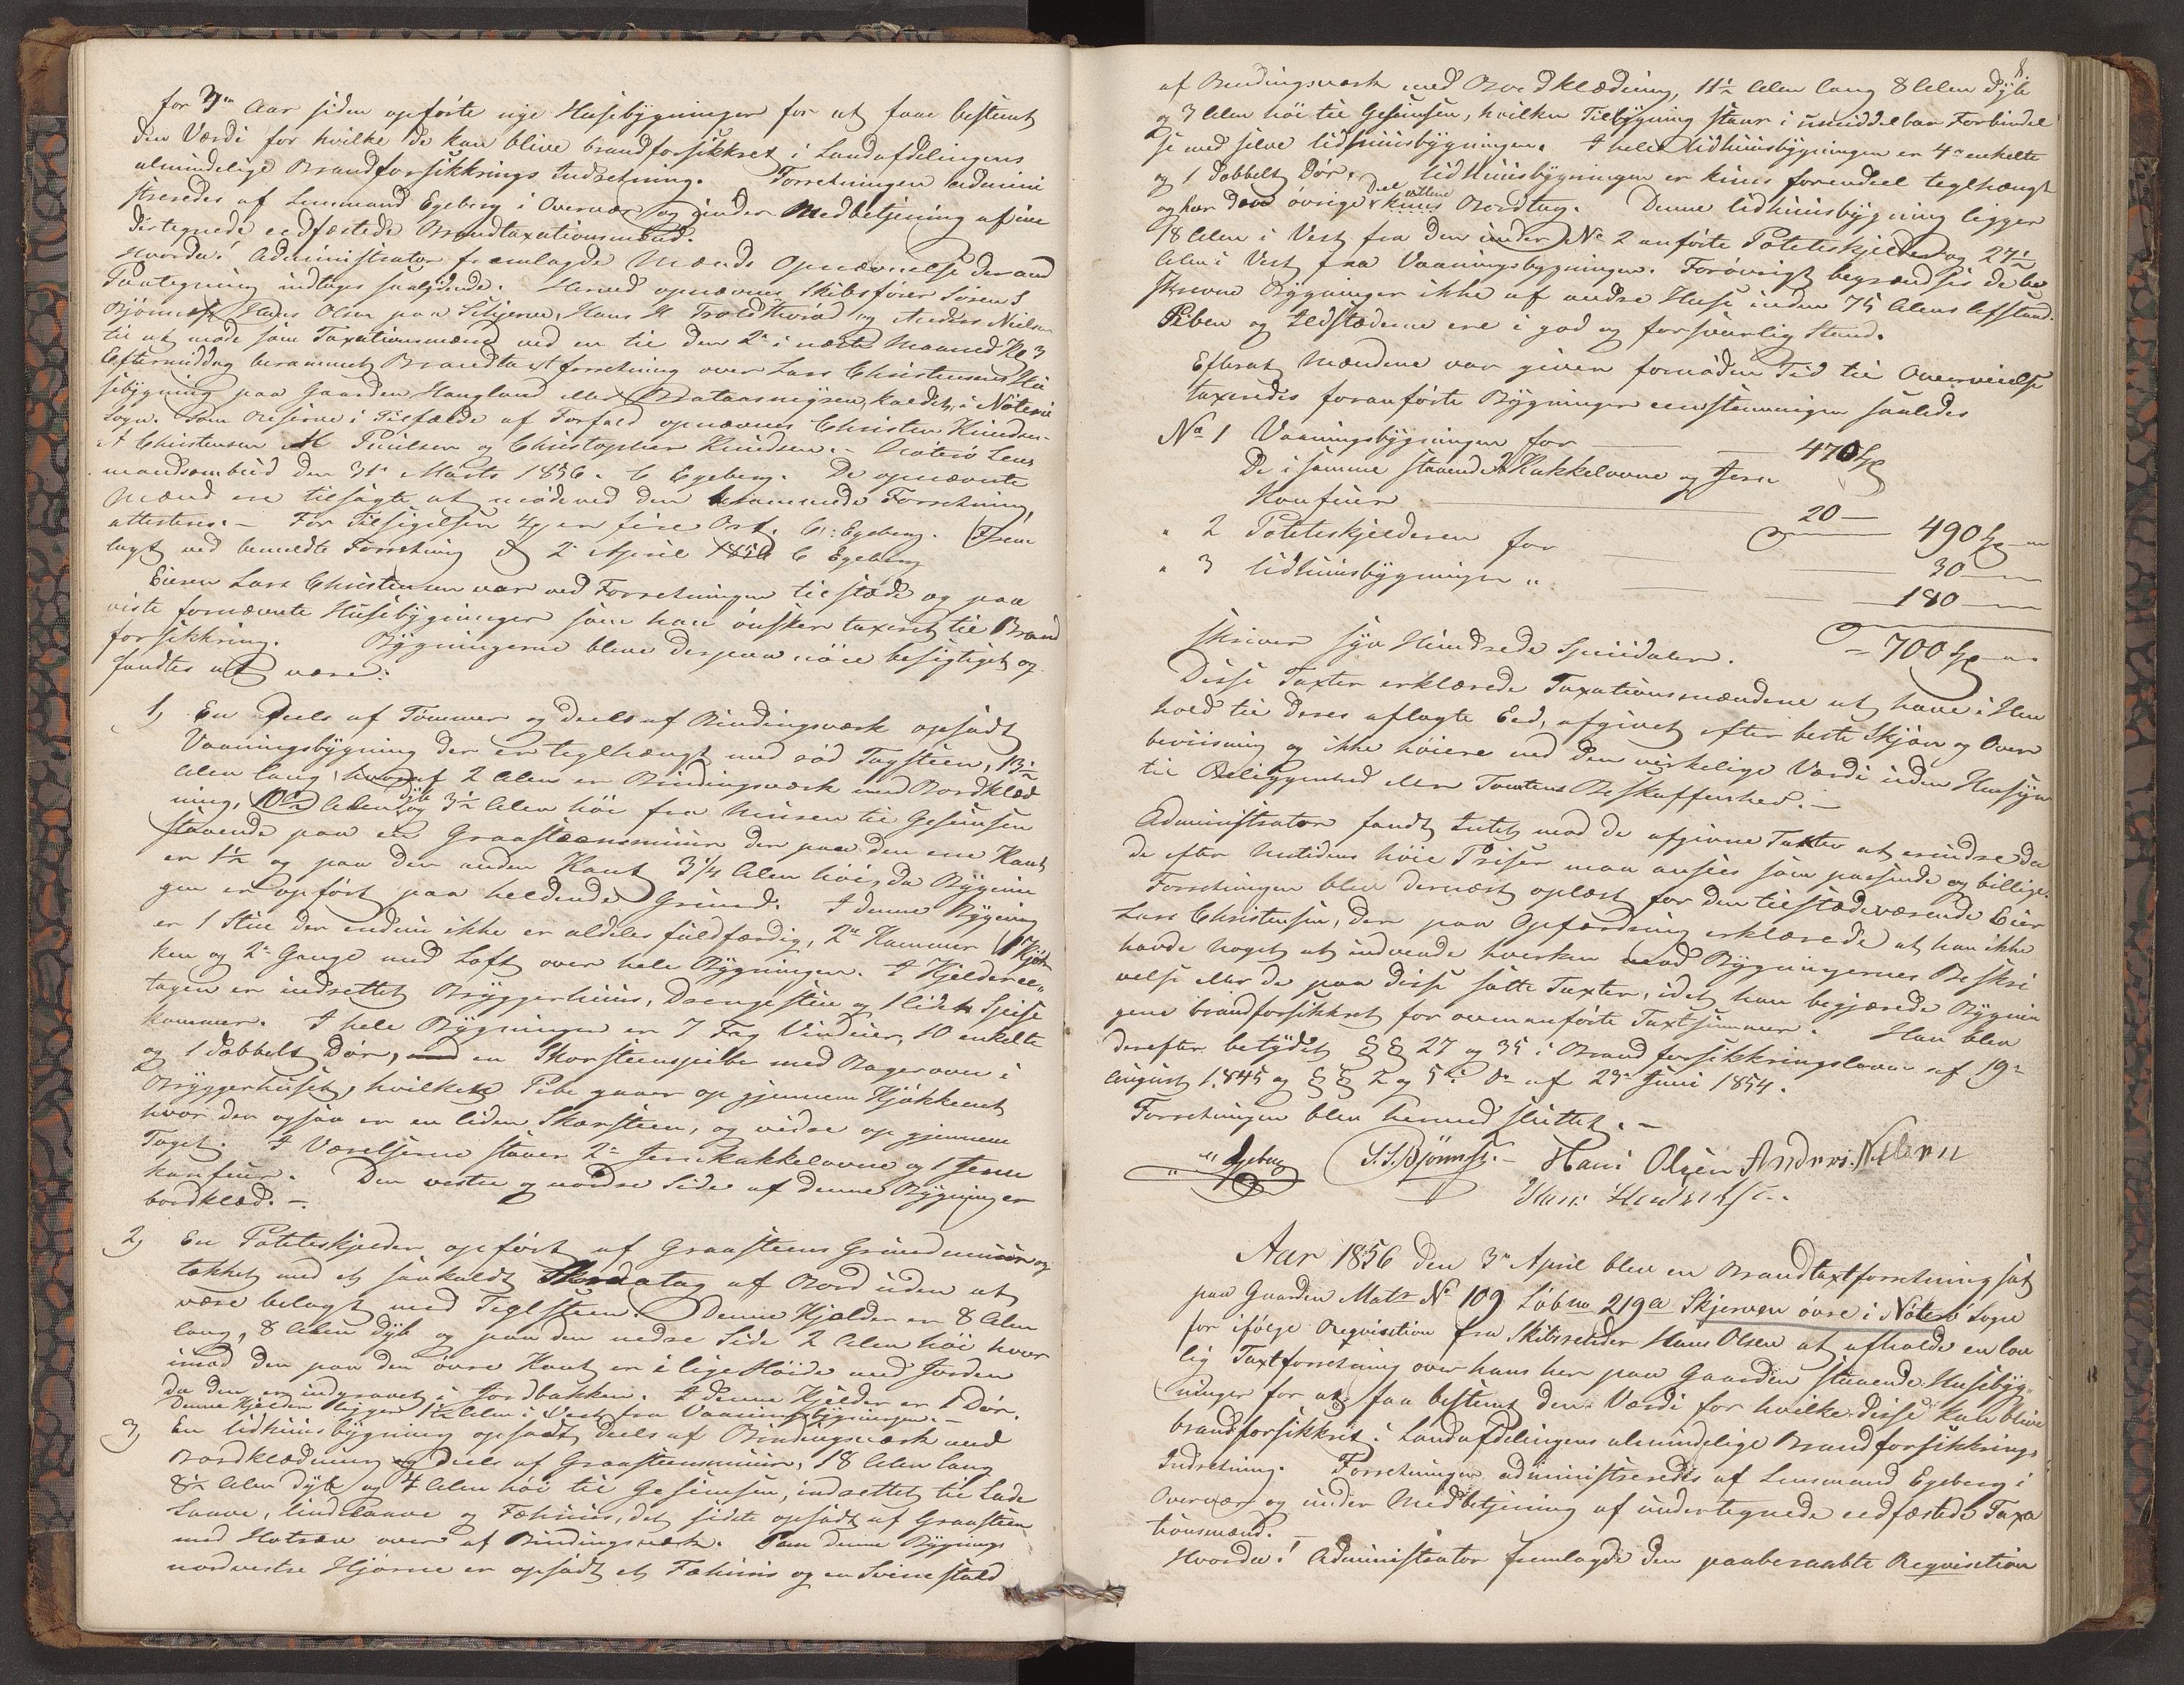 for 3de Aar siden opførte nye Huusebygninger for at faae bestemt
den Værdi for hvilke de kan blive brandforsikkret i Landafdelingens
almindelige Brandforsikkrings Indretning. Forretningen admini
streredes af Lensmand Egeberg i Overvær og under Medbetjening af un
dertegnede eedfæstede Brandtaxationsmænd.
Hvorda! Administrator fremlagde Mænds Opnævnelse der med
Paategning indtages saalydende. Herved opnævnes Skibsfører Søren S
Bjønnes, Hans Olsen paa Skjerve, Hans H Troldkværød og Anders Nielsen
til at møde som Taxationsmænd ved en til den 2de i næste Maaned Kl 3
Eftermiddag berammet Brandtaxtforretning over Lars Christensens Huu
sebygning paa Gaarden Haugland eller Brataasmyren, kaldet, i Nøterø
Sogn. Som Reserve i Tilfælde af Forfald opnævnes Christen Knudsen
A Christensen M Poulsen og Christopher Knudsen. – Nøterø Lens
mandsombud den 31te Marts 1856. C Egeberg. De opnævnte
Mænd ere tilsagte at møde ved den berammede Forretning,
attesteres. – For Tilsigelsen er fire Ort. C: Egeberg. Frem
lagt ved bemeldte Forretning d 2 April 1856 C Egeberg
Eieren Lars Christensen var ved Forretningen tilstæde og paa
viste fornævnte Huusebygninger som han ønsker taxeret til Brand
forsikkring. Bygningerne bleve derpaa nøie besigtiget og
fandtes at være:
1, En deels af Tømmer og deels af Bindingsværk opsadt
Vaaningsbygning der er teglhængt med rød Tagsteen, 13½
Alen lang, hvoraf 2 Alen er Bindingsværk med Bordklæd
ning, 10½ Alen dyb og 3½ Alen høi fra Muren til Gesimsen
staaende paa en Graasteensmuur der paa den ene Kant
er 1½ og paa den anden Kant 3¼ Alen høi, da Bygnin
gen er opført paa heldende Grund. I denne Bygning
er 1 Stue der endnu ikke er aldeles fuldfærdig, 2de Kammer 1 Kjøk
ken og 2de Gange med Loft over hele Bygningen. I Kjelderee„
tagen er indrettet Bryggerhuus, Drengestue og 1 liden Spise
kammer. I hele Bygningen er 7 Fag Vinduer, 10 enkelte
og 1 dobbelt Dør, en Skorsteenspibe med Bagerovn i
Bryggerhuset, hvilken Pibe gaaer op gjennem Kjøkkenet
hvor der ogsaa er en liden Skorsteen, og videre op gjennem
Taget. I Værelserne staaer 2de Jernkakkelovne og 1 Jern
komfuur. Den vestre og nordre Side af denne Bygning er
bordklæd. –
2, En Poteteskjelder opført af Graasteens Grundmuur og
tækket med et saakaldt tag af Bord uden at
være belagt med Teglsteen. Denne Kjelder er 8 Alen
lang, 8 Alen dyb og paa den nedre Side 2 Alen høi hvor
imod den paa den øvre Kant er i lige Høide med Jorden
da den er indgravet i Jordbakken. I denne Kjelder er 1 Dør.
Denne Kjelder ligger 1½ Alen i Vest fra Vaaningsbygningen. –
3, En Udhuusbygning opsadt deels af Bindingsværk med
Bordklædning og deels af Graasteensmuur, 18 Alen lang
8½ Alen dyb og 4 Alen høi til Gesimsen, indrettet til Lade
Laave, Lundlaave og Fæhuus, det sidste opsadt af Graasteen
med over af Bindingsværk. Paa denne Bygnings
nordvestre Hjørne er opsadt et Fæhuus og en Svinestald
8.
af Bindingsværk med Bordklædning, 11½ Alen lang 8 Alen dyb
og 3 Alen høi til Gesimsen, hvilken Tilbygning staar i umiddelbar Forbindel
se med selve Udhuusbygningen. I hele Udhuusbygningen er 4de enkelte
og 1 dobbelt Dør. Udhuusbygningen er kuns forendeel teglhængt
og har den øvrige Deel Bordtag. Denne Udhuusbygning ligger
18 Alen i Vest fra den under No 2 anførte Poteteskjelder og 27½
Alen i Vest fra Vaaningsbygningen. Forøvrigt begrændses de be
skrevne Bygninger ikke af andre Huse inden 75 Alens Afstand.
Piben og Ildstæderne ere i god og forsvarlig Stand.
Efterat Mændene var given fornøden Tid til Overveielse
taxeredes foranførte Bygninger eenstemmigen saaledes
No 1 Vaaningsbygningen for — 470 Spd
De i samme staaende Kakkelovne og Jern
Komfuur — 20 — 490 Spd —
" 2 Poteteskjelderen for — 30 —
" 3 Udhuusbygningen " — 180 —
= 700 Spd —
skriver syv Hundrede Speciedaler.
Disse Taxter erklærede Taxationsmændene at have i Hen
hold til deres aflagte Eed, afgivet efter beste Skjøn og Over
beviisning og ikke høiere end den virkelige Værdi uden Hensyn
til Beliggenhed eller Tomtens Beskaffenhed. –
Administrator fandt Intet mod de afgivne Taxter at erindre da
de efter Nutidens høie Priser maa ansees som passende og billige.
Forretningen blev dernæst oplæst for den tilstædeværende Eier
Lars Christensen, der paa Opfordring erklærede at han ikke
havde noget at indvende hverken mod Bygningernes Beskri
velse eller de paa disse satte Taxter, idet han begjærede Bygnin
gene brandforsikkret for ovenanførte Taxtsummer. Han blev
derefter betydet §§ 27 og 35 i Brandforsikkringsloven af 19de
August 1845 og §§ 2 og 5 i do af 23de Juni 1854.
Forretningen blev hermed sluttet. –
Egeberg S. S. Bjønnes. – Hans Olsen Anders Nilsen
Hans Hendriksen.
Aar 1856 den 3de April blev en Brandtaxtforretning sat
paa Gaarden Matr No 109 Løbno 219a Skjerven øvre i Nøterø Sogn
for ifølge Reqvisition fra Skibsreder Hans Olsen at afholde en lov
lig Taxtforretning over hans her paa Gaarden staaende Husebyg„
ninger for at faa bestemt den Værdi for hvilke disse kan blive
brandforsikkret i Landafdelingens almindelige Brandforsikkrings
Indretning. Forretningen administreredes af Lensmand Egeberg i
Overvær og under Medbetjening af undertegnede eedfæstede Taxa
tionsmænd. –
Hvorda! Administrator fremlagde den paaberaabte Reqvisition